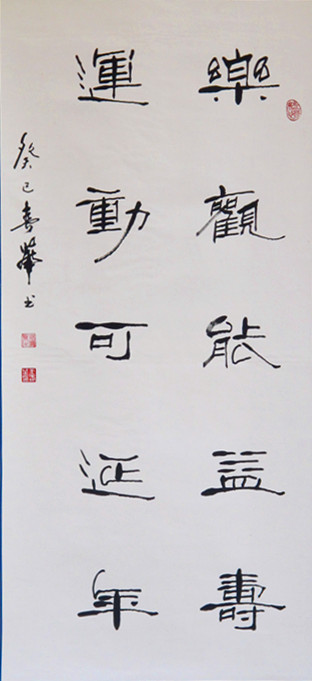 樂觀能益壽
運動可延年
癸巳春華书